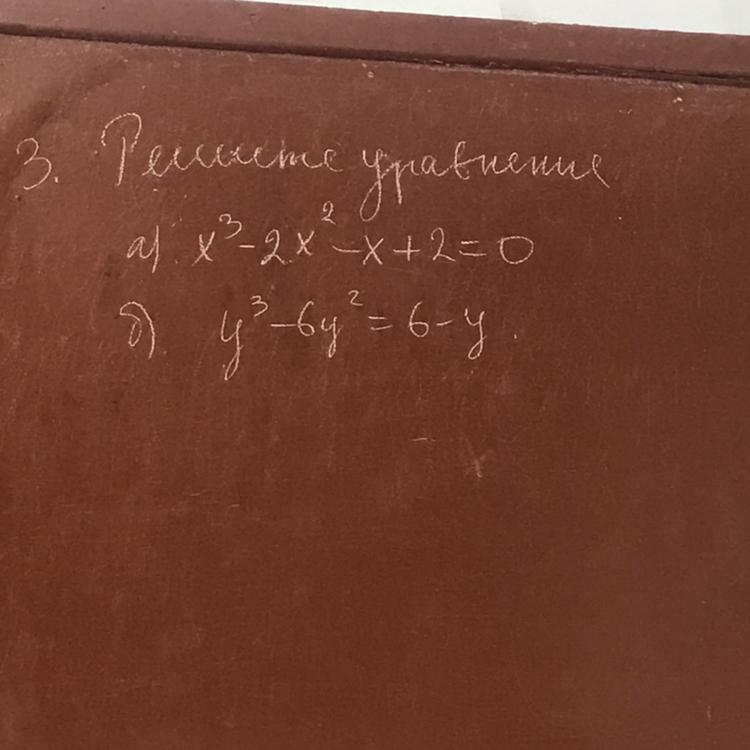 3. Решите уравнение
а) x³-2x²-x+2=0
б) y³-6y²=6-y.